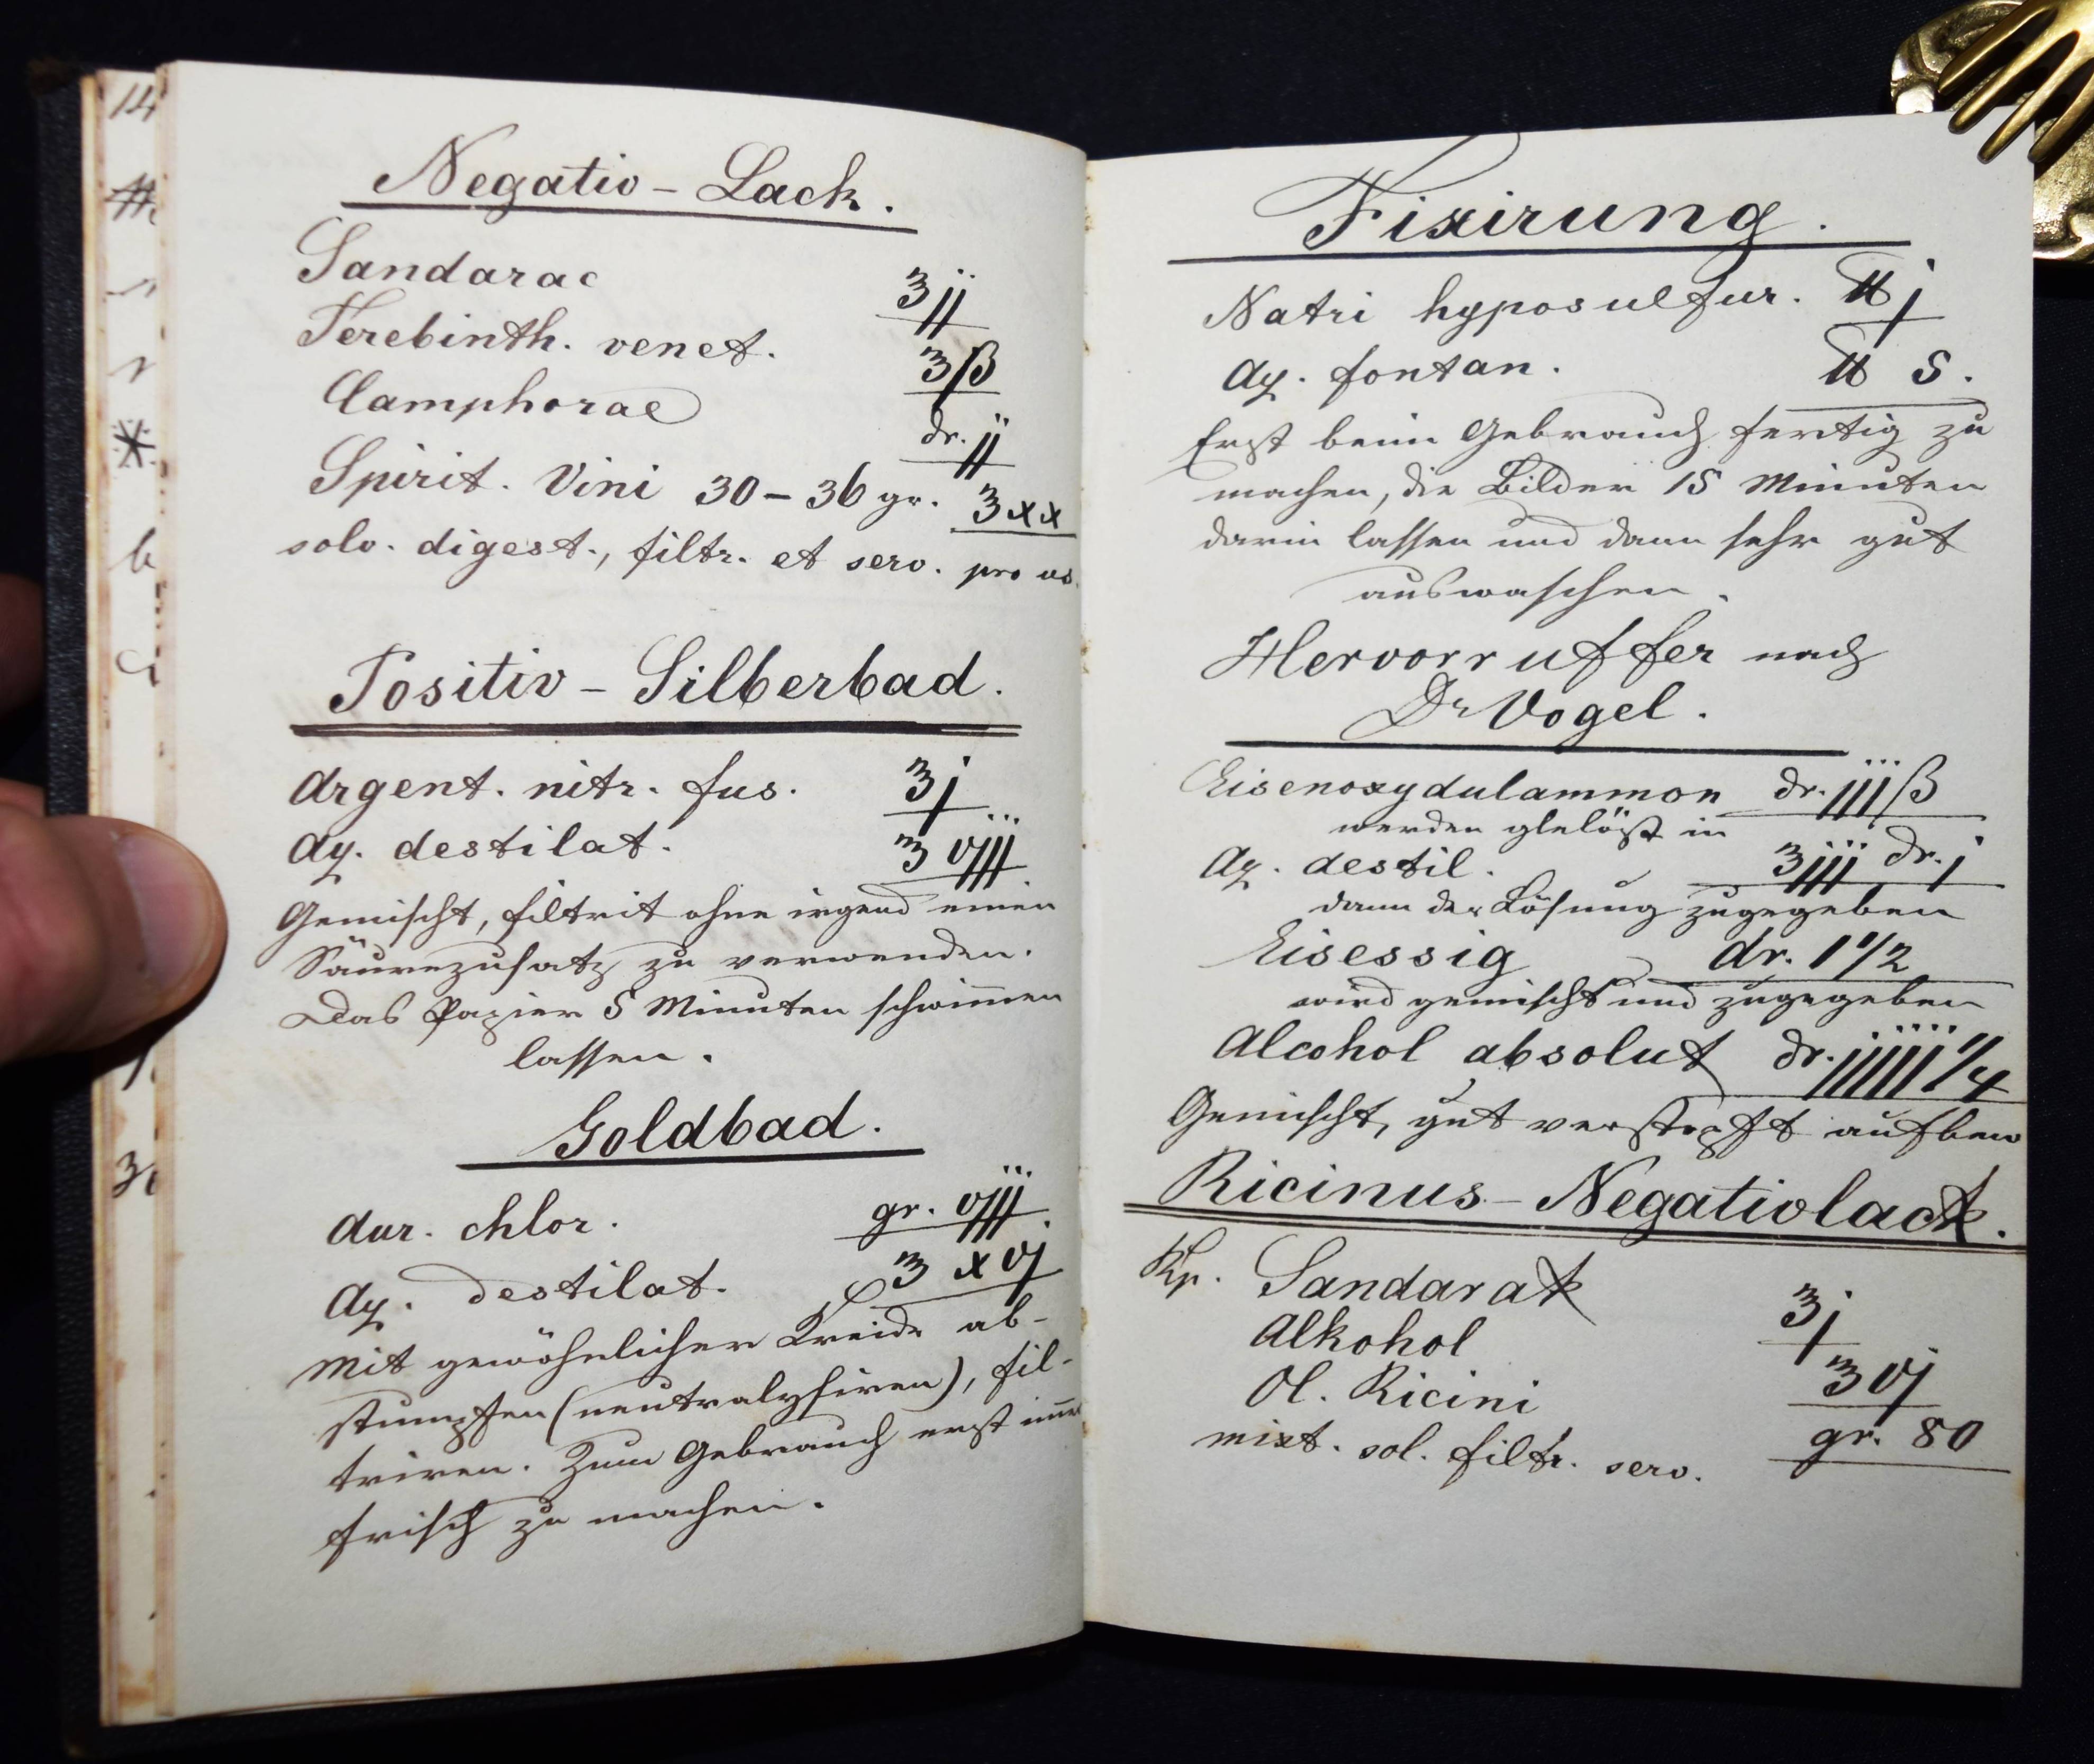 14
Negativ - Lack.
Sandarac ℥jj
Terebinth. venet. ℥ß
Camphorae dr. jj
Spirit. Vini 30 - 36 gr. ℥xx
solv. digest., filtr. et serv. pro us.
Positiv - Silberbad.
Argent. nitr. fus. ℥j
Aq. destilat. ℥ vjjj
Gemischt, filtrit ohne irgend einen
Säurezusatz zu verwenden.
Das Papier 5 Minuten schwim̄en
lassen.
Goldbad.
Aur. chlor. gr. vjjj.
Aq. destilat. ℥ xvj
Mit gewöhnlicher Kreide ab-
stumpfen (neutralysiren), fil-
triren. Zum Gebrauch erst im̄er
frisch zu machen.
Fixirung.
Natri hyposulfur. ℔ j
Aq. fontan. ℔ 5.
Erst beim Gebrauch fertig zu
machen, die Bilder 15 Minuten
darin lassen und dann sehr gut
auswaschen.
Hervorruffer nach
Dr Vogel.
Eisenoxydulammon dr. jjjß
werden glelößt in
Aq. destil. ℥jjj dr. j
dann der Lösung zugegeben
Eisessig dr. 1 1/2
wird gemischt und zugegeben
Alcohol absolut dr. jjjjj 1/4
Gemischt, gut verstopft aufbew
Ricinus - Negativlack.
Rp. Sandarak ℥j
Alkohol ℥vj
Ol. Ricini gr. 80
mixt. sol. filtr. serv.